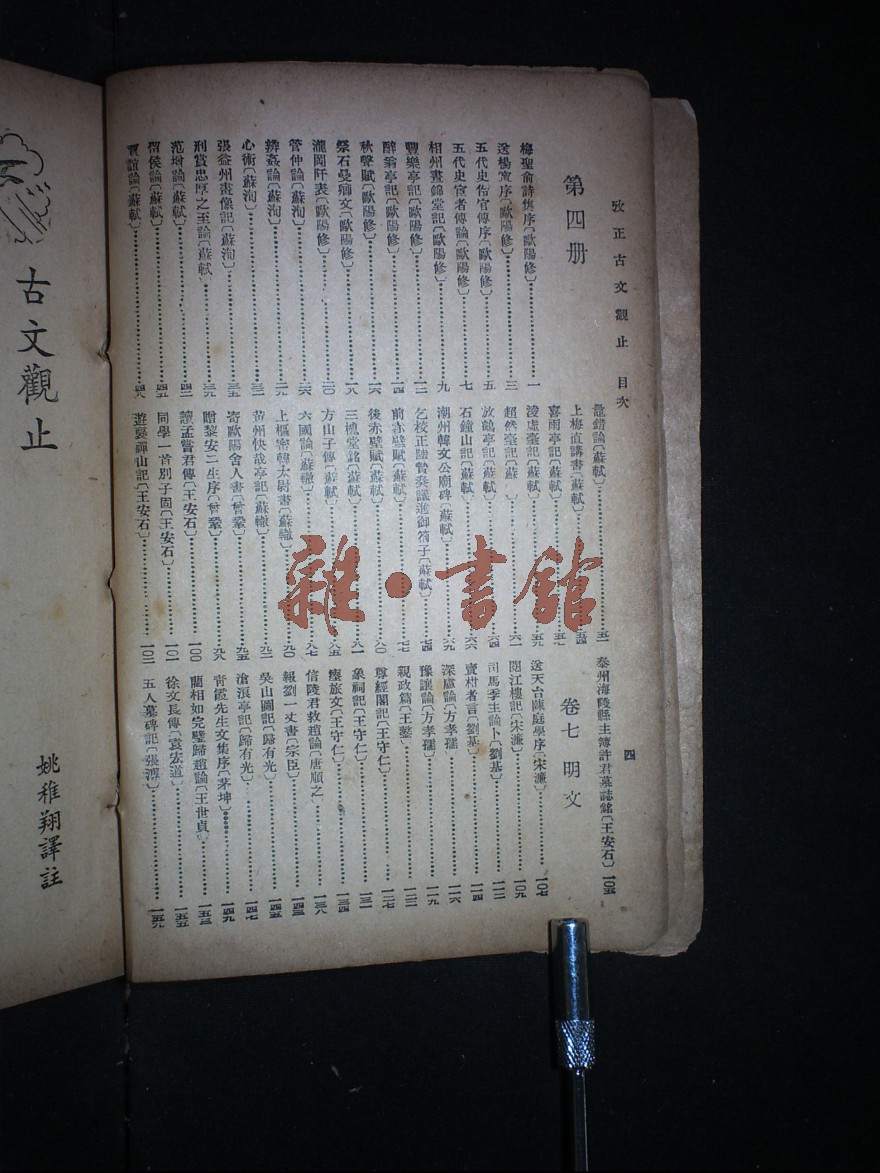 攷正古文觀止 目次
四
第四册
梅聖俞詩集序〔歐陽修〕………一
送楊寘序〔歐陽修〕………三
五代史伶官傳序〔歐陽修〕………五
五代史宦者傳論〔歐陽修〕………七
相州晝錦堂記〔歐陽修〕………九
豐樂亭記〔歐陽修〕………一二
醉翁亭記〔歐陽修〕………一四
秋聲賦〔歐陽修〕………一六
祭石曼卿文〔歐陽修〕………一八
瀧岡阡表〔歐陽修〕………二〇
管仲論〔蘇洵〕………二六
辨姦論〔蘇洵〕………二九
心術〔蘇洵〕………三二
張益州畫像記〔蘇洵〕………三五
刑賞忠厚之至論〔蘇軾〕………三九
范增論〔蘇軾〕………四二
留侯論〔蘇軾〕………四五
賈誼論〔蘇軾〕………四八
鼂錯論〔蘇軾〕………五一
上梅直講書〔蘇軾〕………五四
喜雨亭記〔蘇軾〕………五七
淩虛臺記〔蘇軾〕………五九
超然臺記〔蘇 〕………六一
放鶴亭記〔蘇軾〕………六四
石鐘山記〔蘇軾〕………六六
潮州韓文公廟碑〔蘇軾〕………六九
乞校正陸贄奏議進御箚子〔蘇軾〕………七四
前赤壁賦〔蘇軾〕………七七
後赤壁賦〔蘇軾〕………八〇
三槐堂銘〔蘇軾〕………八一
方山子傳〔蘇軾〕………八五
六國論〔蘇轍〕………八七
上樞密韓太尉書〔蘇轍〕………九〇
黄州快哉亭記〔蘇轍〕………九二
寄歐陽舍人書〔曾鞏〕………九五
贈黎安二生序〔曾鞏〕………九八
讀孟嘗君傳〔王安石〕………一〇〇
同學一首別子固〔王安石〕………一〇一
遊褒禪山記〔王安石〕………一〇二
泰州海陵縣主簿許君墓誌銘〔王安石〕一〇五
卷七 明文
送天台陳庭學序〔宋濂〕………一〇七
閱江樓記〔宋濂〕………一〇九
司馬季主論卜〔劉基〕………一一二
賣柑者言〔劉基〕………一一四
深慮論〔方孝孺〕………一一六
豫讓論〔方孝孺〕………一一九
親政篇〔王鏊〕………一二二
尊經閣記〔王守仁〕………一二七
象祠記〔王守仁〕………一三一
瘞旅文〔王守仁〕………一三四
信陵君救趙論〔唐順之〕………一三八
報劉一丈書〔宗臣〕………一四三
吳山圖記〔歸有光〕………一四五
滄浪亭記〔歸有光〕………一四七
青霞先生文集序〔茅坤〕………一四九
藺相如完璧歸趙論〔王世貞〕………一五三
徐文長傳〔袁宏道〕………一五五
五人墓碑記〔張溥〕………一五九
古文觀止
姚稚翔譯註
雜·書館